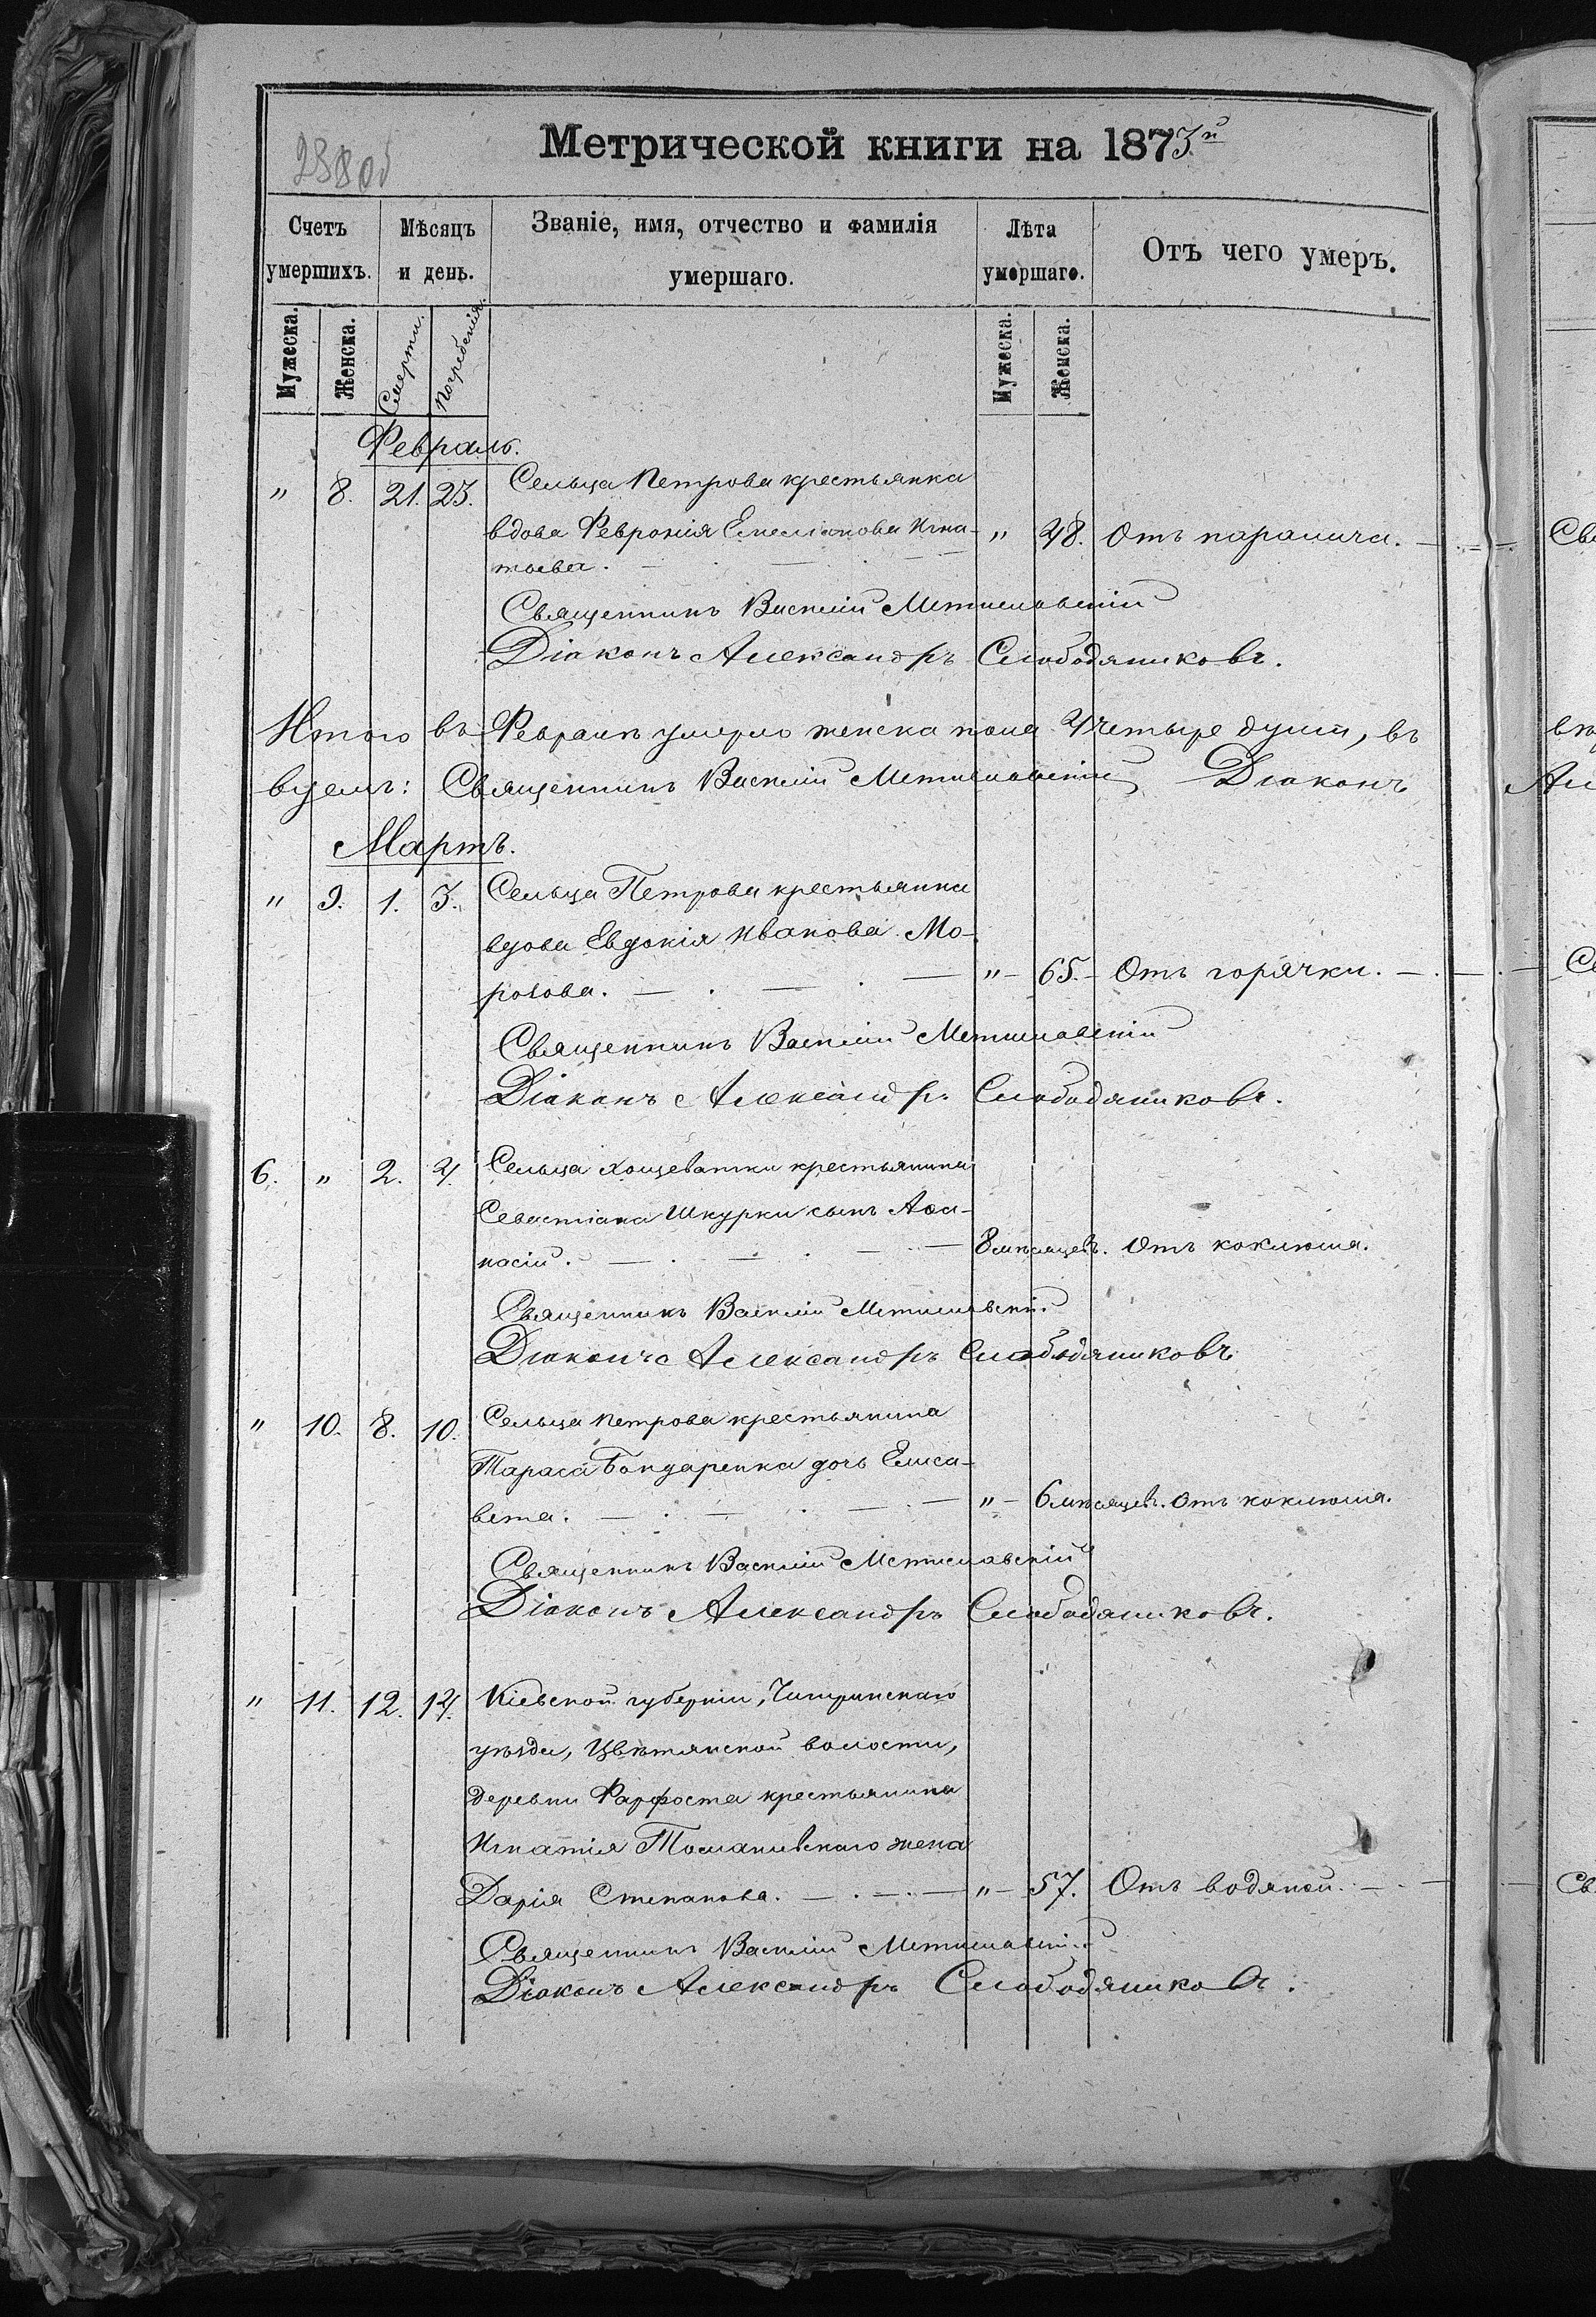 Метрической книги на 1873й
Счетъ умершихъ.
Мѣсяцъ и день.
Званіе, имя, отчество и фамилія умершаго.
Лѣта умершаго.
Отъ чего умеръ.
Мужеска.
Женска.
Смерти.
Погребенія.
Мужеска.
Женска.
Февраль.
" 8. 21. 23. Сельца Петрова крестьянка
вдова Февронія Емеліанова Игна- " 48. Отъ паралича.
тьева.
Священникъ Василій Мстиславскій
Діаконъ Александръ Слободяниковъ.
Итого въ Февралѣ умерло женска пола 4 четыре души, въ
вѣ
Священникъ Василій Мстиславскій Діаконъ
Ал
Мартъ.
" 9. 1. 3. Сельца Петрова крестьянка
вдова Евдокія Иванова Мо-
розова. " 65. Отъ горячки.
Священникъ Василій Мстиславскій
Діаконъ Александръ Слободяниковъ.
6. " 2. 4. Сельца Хощеватки крестьянина
Севастіана Шкурки сынъ Аѳа-
насій. 8 мѣсяцевъ. Отъ коклюша.
Священникъ Василій Мстиславскій
Діаконъ Александръ Слободяниковъ
" 10. 8. 10. Сельца Петрова крестьянина
Тараса Бондаренка дочь Елиса-
вета. " 6 мѣсяцевъ. Отъ коклюша.
Священникъ Василій Мстиславскій
Діаконъ Александръ Слободяниковъ.
" 11. 12. 14. Кіевской губерніи, Чигиринскаго
уѣзда, Цвѣтянской волости,
деревни Фарфоста крестьянина
Игнатія Томашевскаго жена
Дарія Степанова. " 57. Отъ водяной.
Священникъ Василій Мстиславскій
Діаконъ Александръ Слободяниковъ.